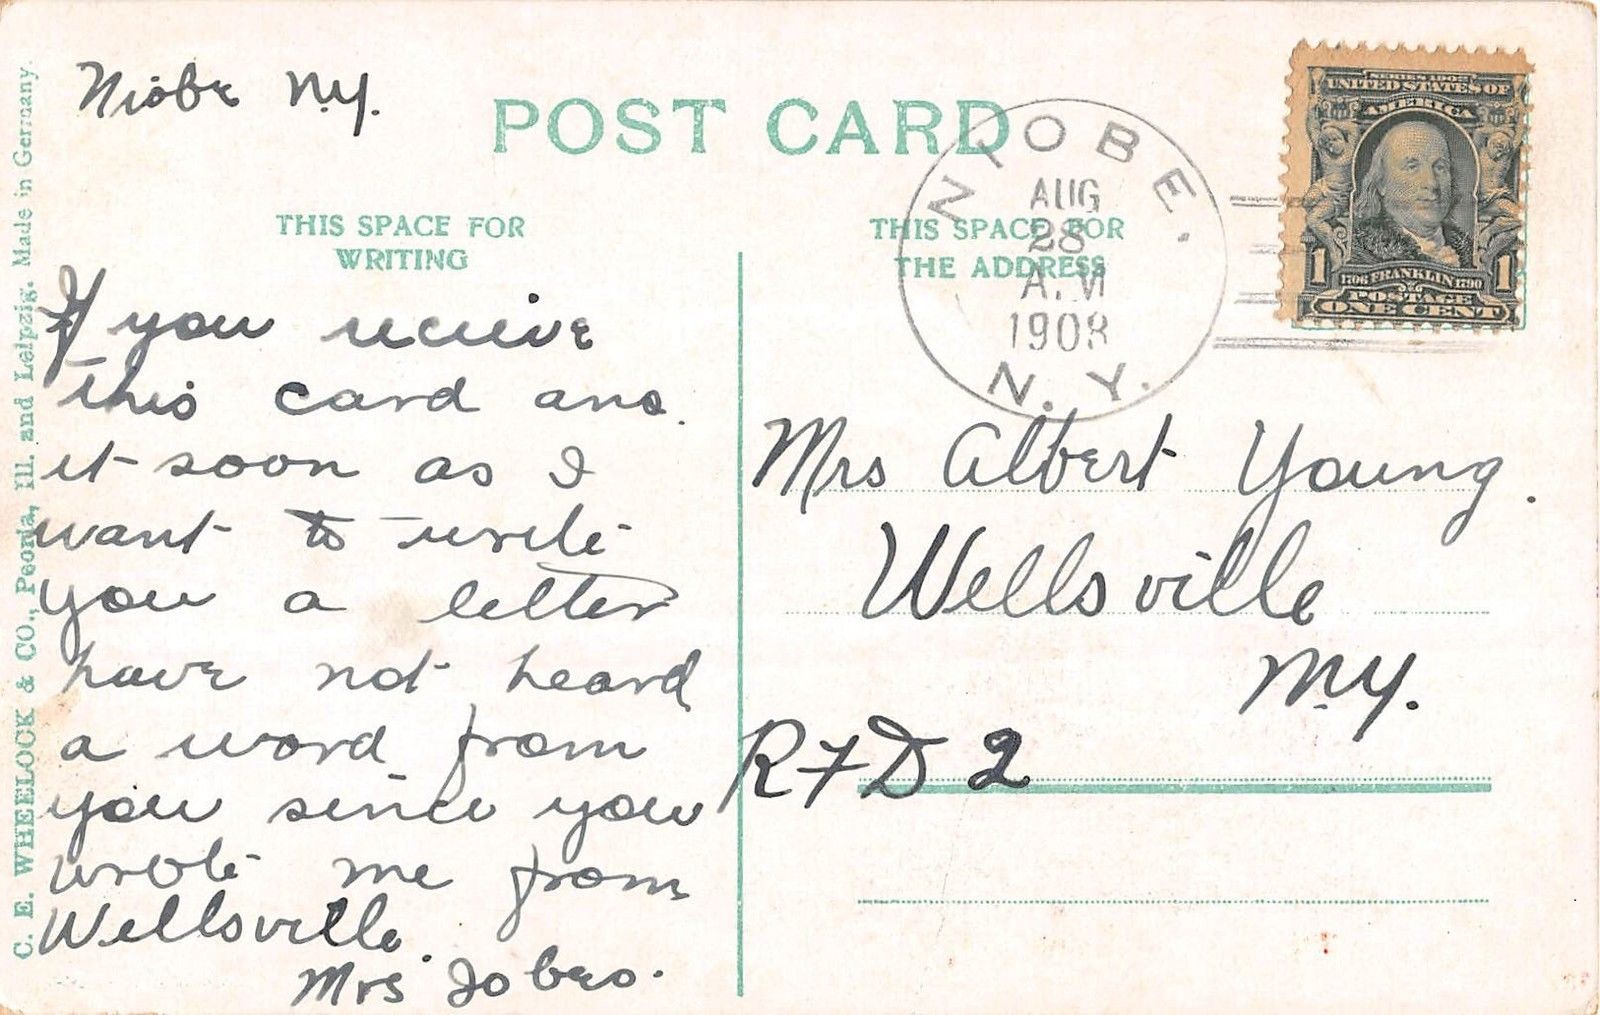 Niobe N.Y.
POST CARD
THIS SPACE FOR
WRITING
If you recieve
this card ans.
it soon as I
want to write
you a letter
have not heard
a word from
you since you
wrote me from
Wellsville.
Mrs Jobes.
C. E. WHEELOCK & CO., Peoria, Ill. and Leipzig. Made in Germany.
NIOBE.
AUG
28
A.M
1908
N. Y.
THIS SPACE FOR
THE ADDRESS
SERIES 1902
UNITED STATES OF
AMERICA
1 1706 FRANKLIN 1790 1
POSTAGE
ONE CENT
Mrs Albert Young.
Wellsville
N.Y.
R F D 2